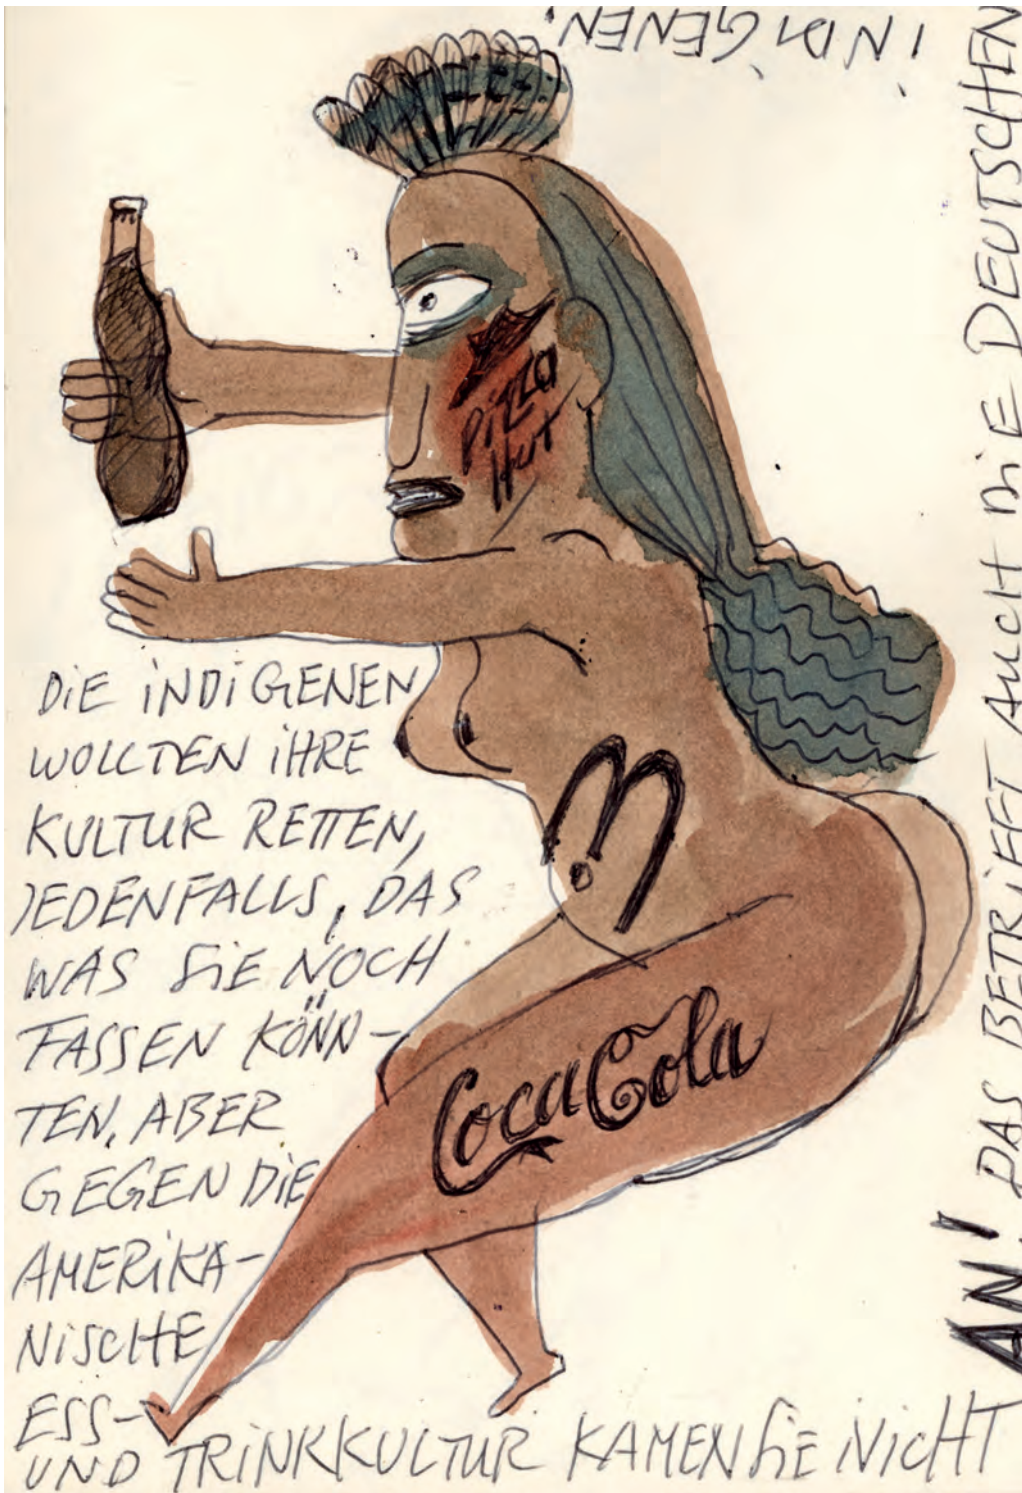 DIE INDIGENEN
WOLLTEN IHRE
KULTUR RETTEN,
JEDENFALLS, DAS
WAS SIE NOCH
FASSEN KÖNN-
TEN, ABER
GEGEN DIE
AMERIKA-
NISCHE
ESS-
UND TRINKKULTUR KAMEN SIE NICHT
AN! DAS BETRIFFT AUCH DIE DEUTSCHEN
INDIGENEN.
Pizza
Hut
M
Coca Cola